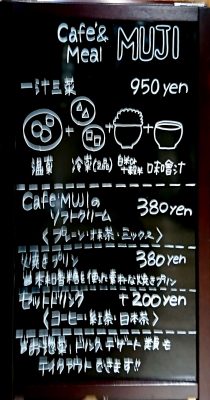 Cafe'&
Meal MUJI
一汁三菜 950yen
温菜 冷菜(2品) 白米or十穀米 味噌汁
Cafe MUJIの
ソフトクリーム 380yen
〈プレーン・抹茶・ミックス〉
焼きプリン 380yen
を使った素朴な焼きプリン
セットドリンク +200yen
〈コーヒー・紅茶・日本茶〉
お惣菜・ドリンク・デザート・業資モ
テイクアウトできます!!